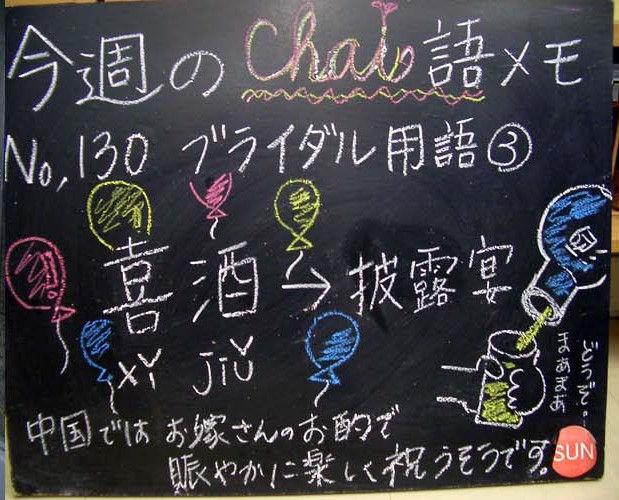 今週のChai語メモ
No,130 ブライダル用語③
喜酒→披露宴
xǐ jiǔ
どうぞ。
まあまあ
中国では お嫁さんのお酌で
賑やかに楽しく祝うそうです。
SUN